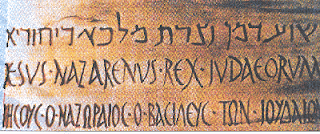 שוע דמן נצרת מלכא דיהודיא
JESVS·NAZARENVS·REX·JVDAEORVM
ΙΗCΟΥC·Ο·ΝΑΖΩΡΑΙΟC·Ο·ΒΑCΙΛΕΥC·ΤΩΝ·ΙΟΥΔΑΙΩΝ